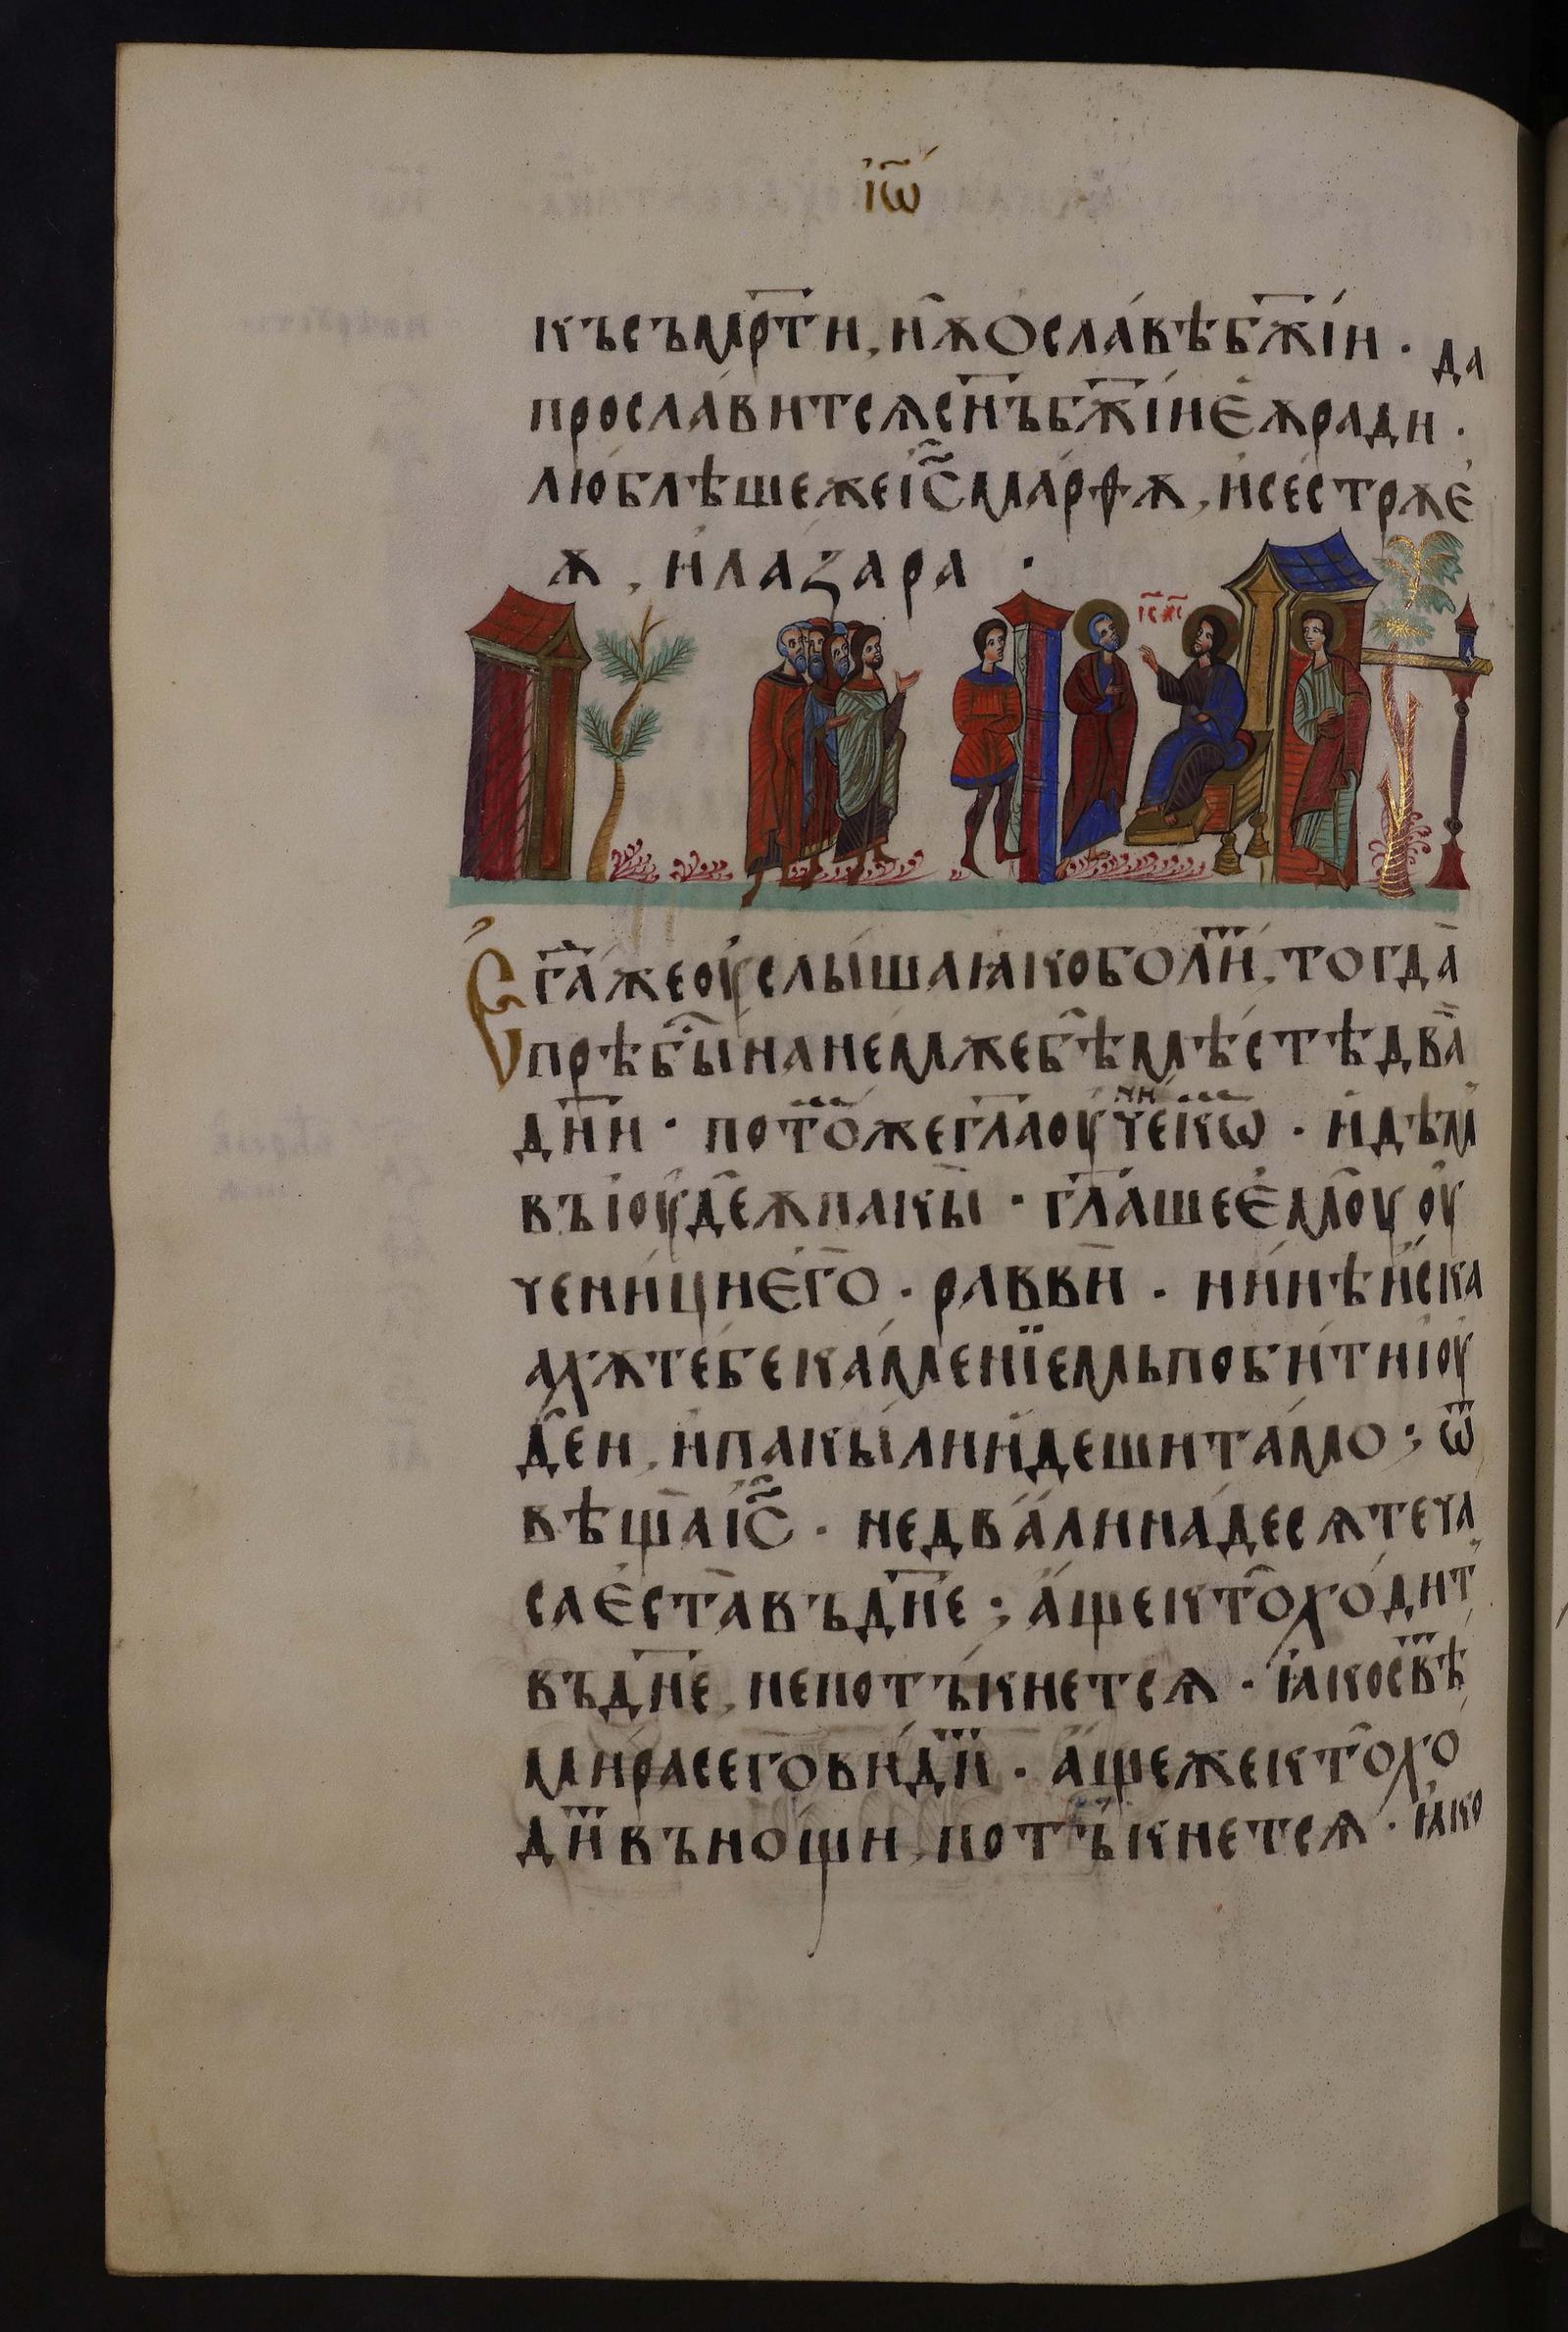 і҆ѡ҃
къ съмр҃ти, нѫ о славѣ бж҃їи · да
прославитсѧ сн҃ъ бж҃їи еѫ ради ·
люблѣше же іс҃ марѳѫ, и сестрѫ е
ѫ, и лазара ·
іс҃ хс҃
Егда же оуслыша ꙗко боли, тогда
прѣбыи на немже бѣ мѣстѣ два
дн҃и · потⷪ҇ же гл҃а оученикѡⷨ · идѣм
въ іоудеѫ пакы · гл҃аше емоу оу
ченици его · равви · нинѣ иска
ахѫ тебе каменїемь побити іоу
деи, и пакы ли идеши тамо ; ѿ
вѣща іс҃ · не два ли надесѧте ча
са еста въ дн҃е ; аще кто ходит
въ дн҃е, не потъкнетсѧ · ꙗко свѣⷮ
мира сего видиⷮ · аще же кто хо
диⷮ въ нощи, потъкнетсѧ · ꙗко